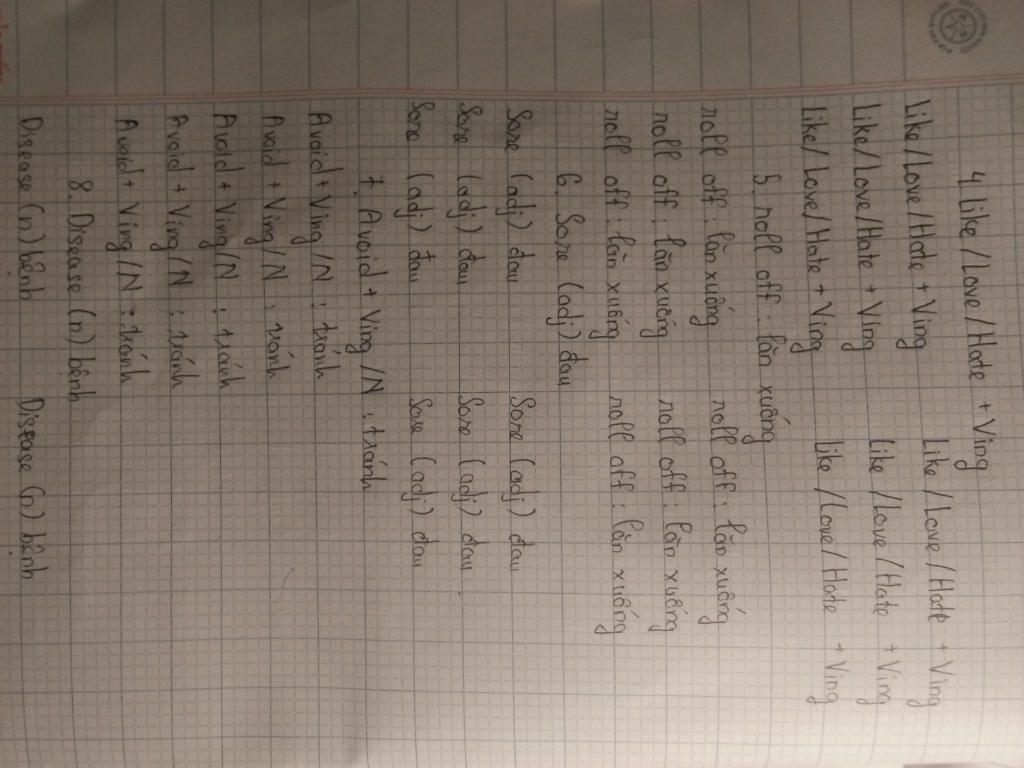 4. Like/Love/Hate + Ving
Like/Love/Hate + Ving Like/Love/Hate + Ving
Like/Love/Hate + Ving Like/Love/Hate + Ving
Like/Love/Hate + Ving Like/Love/Hate + Ving
5. roll off: lăn xuống
roll off: lăn xuống roll off: lăn xuống
roll off: lăn xuống roll off: lăn xuống
roll off: lăn xuống roll off: lăn xuống
6. Sore (adj) đau
Sore (adj) đau Sore (adj) đau
Sore (adj) đau Sore (adj) đau
Sore (adj) đau Sore (adj) đau
7. Avoid + Ving/N: tránh
Avoid + Ving/N: tránh
Avoid + Ving/N: tránh
Avoid + Ving/N: tránh
Avoid + Ving/N: tránh
Avoid + Ving/N: tránh
8. Disease (n) bệnh
Disease (n) bệnh Disease (n) bệnh